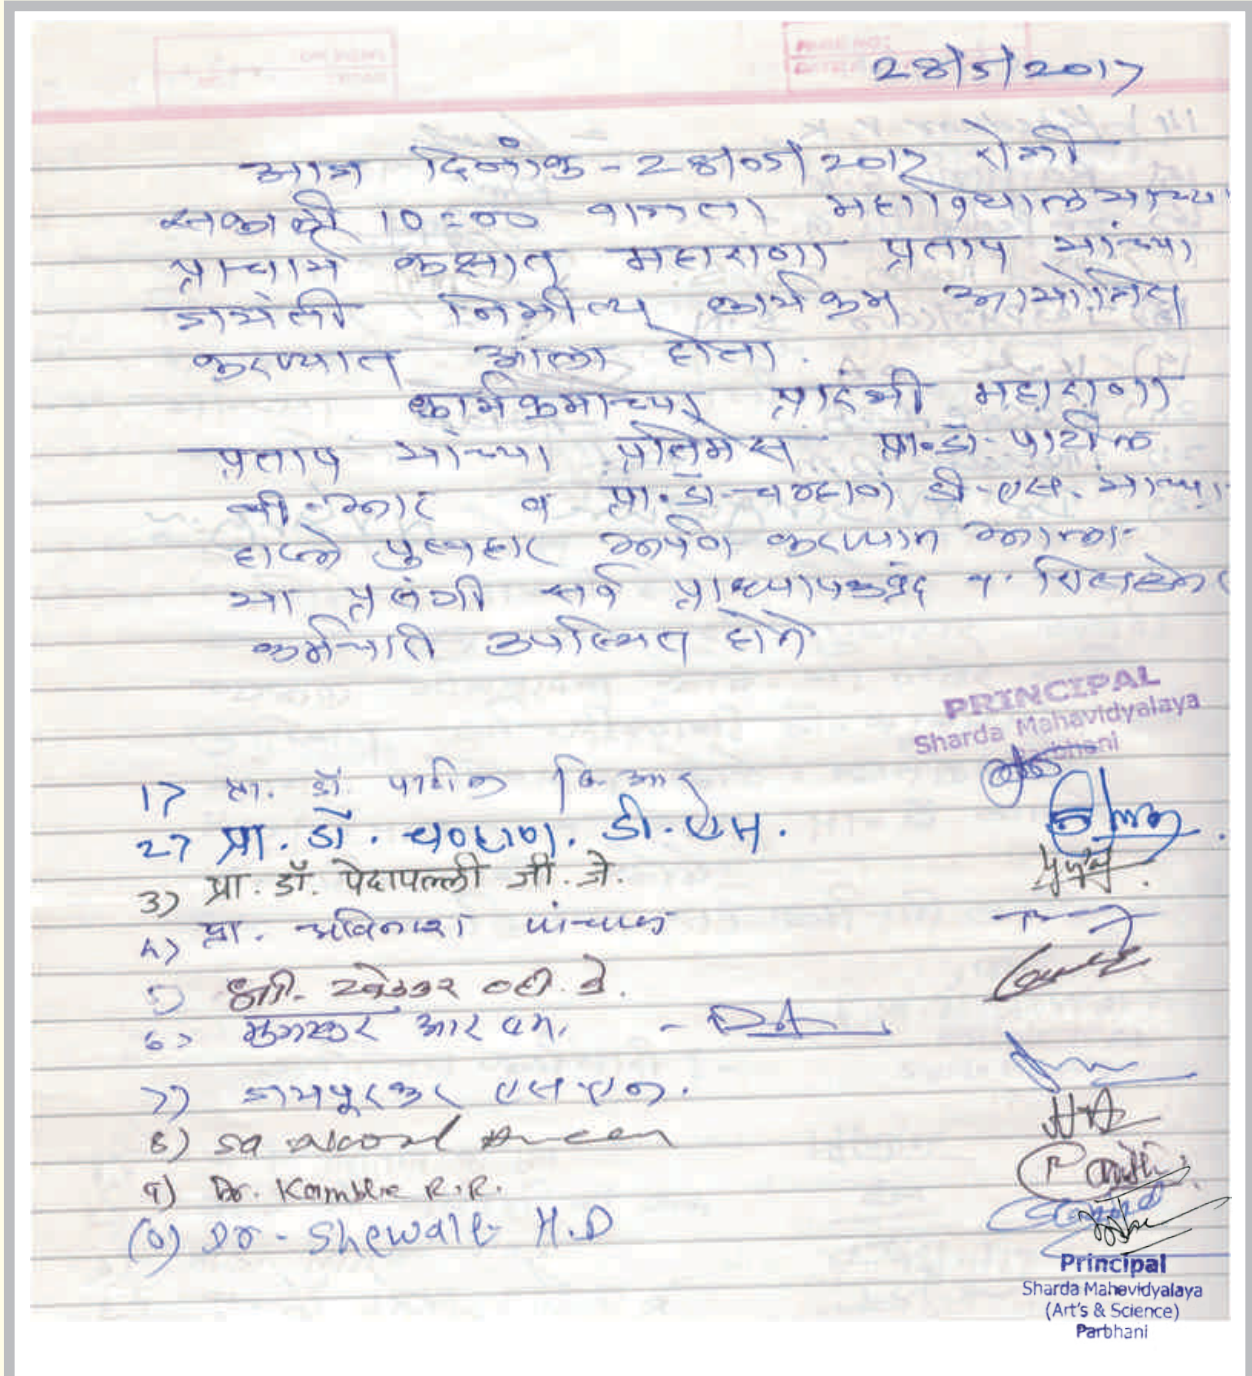 28/5/2017
आज दिनांक - 28/05/2017 रोजी
सकाळी 10=00 वाजता महाविद्यालयाच्या
प्राचार्य कक्षात महाराणा प्रताप यांच्या
जयंती निमीत्य कार्यक्रम आयोजित
करण्यात आला होता.
कार्यक्रमाच्या प्रारंभी महाराणा
प्रताप यांच्या प्रतिमेस प्रा.डॉ. पाटील
व्ही.आर व प्रा.डॉ. चव्हाण डी.एस. यांच्या
हस्ते पुष्पहार अर्पण करण्यात आला.
या प्रसंगी सर्व प्राध्यापकवृंद व शिक्षकेतर
कर्मचारी उपस्थित होते
PRINCIPAL
Sharda Mahavidyalaya
Parbhani
1) प्रा. डॉ. पाटील व्हि.आर
2) प्रा. डॉ. चव्हाण. डी. एस.
3) प्रा. डॉ. पेदापल्ली जी. जे.
4) प्रा. अविनाश पांचाळ
5) श्री.
6) आर एम.
7) जयपूरकर एस.एन.
8)
9) Dr. Kamble R.R.
10) Dr. Shewale H.D
Principal
Sharda Mahavidyalaya
(Art's & Science)
Parbhani